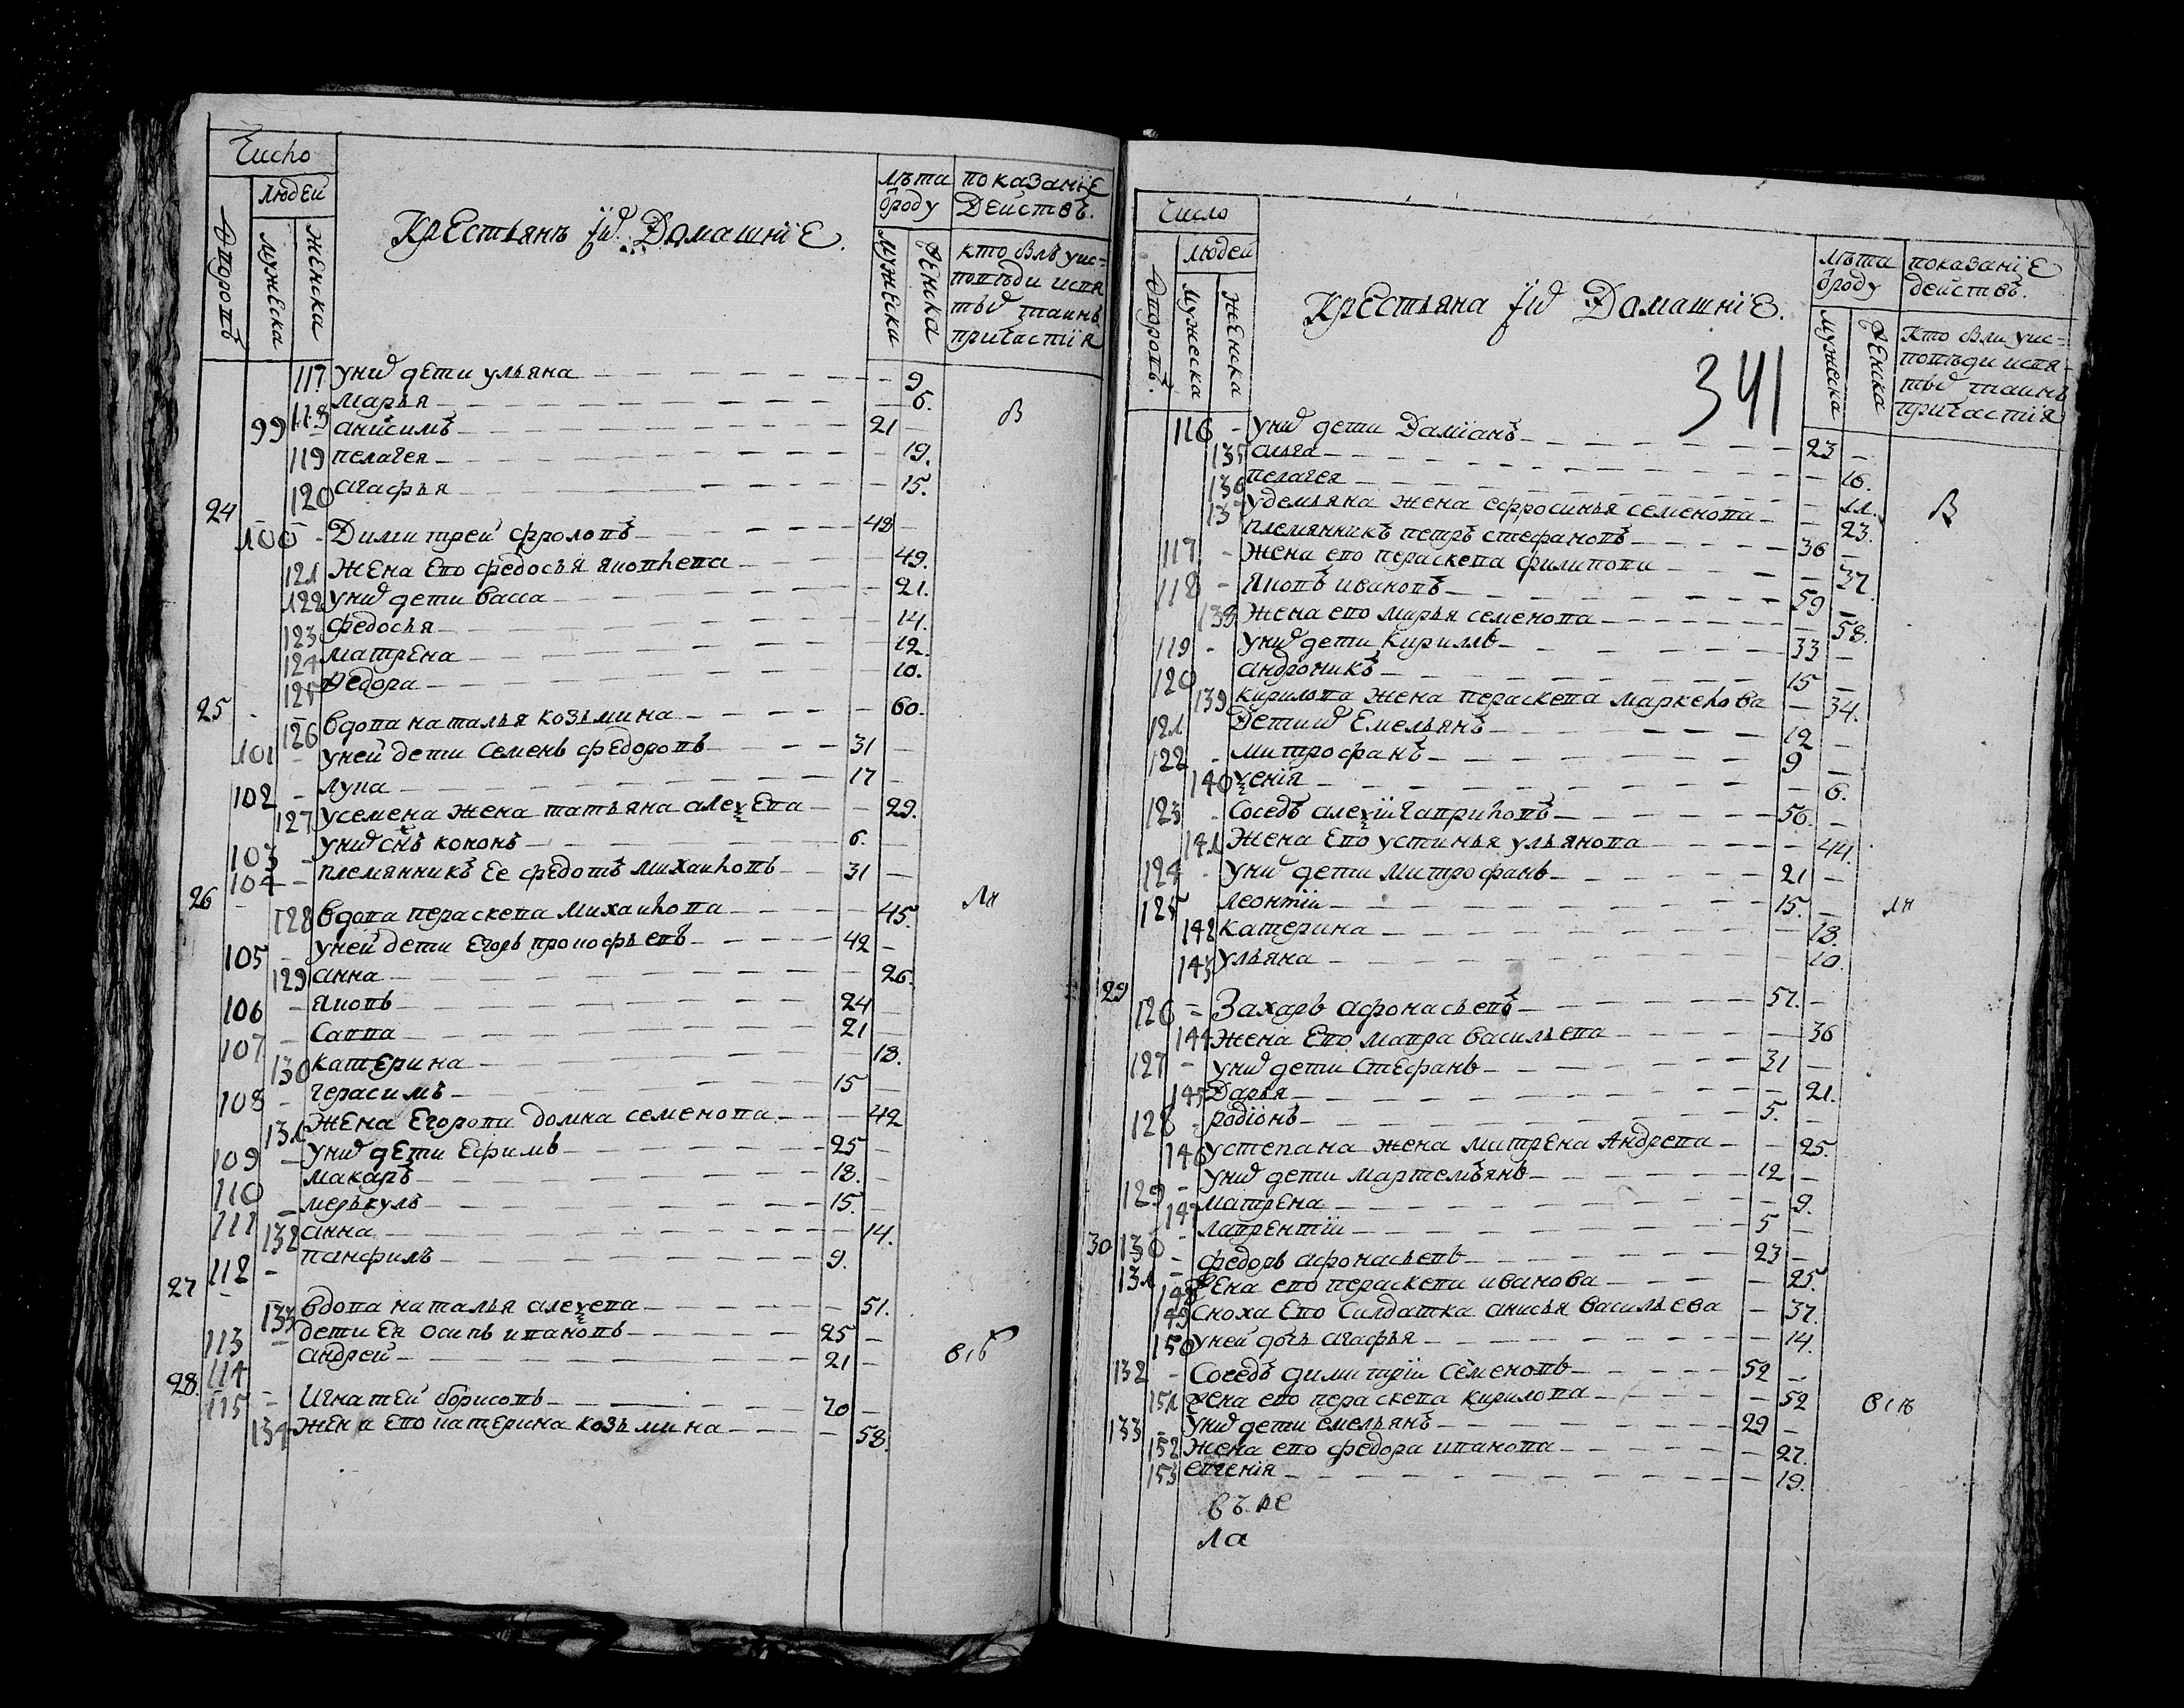 Число
людей
дворовъ
мужеска
женска
Крестьянъ их Домашние.
лѣта
ѿроду
мужески
женска
показанїе
Действъ.
кто былъ уис
повѣди исвя
тых таинъ
причастїя
117 у них дети ульяна 9
118 марья 6.
99 анисимъ 21
119 пелагея 19.
120 агафья 15.
В
24
100 Димитрей фроловъ 48
121 жена его федосья яковлева 49.
122 у них дети васса 21.
123 федосья 14.
124 матрена 12.
125 федора 10.
25
126 вдова наталья козьмина 60.
101 у ней дети семенъ федоровъ 31
102 лупа 17
127 у семена жена татьяна алеѯева 29.
103 у них снъ кононъ 6.
104 племянникъ ее федотъ михаиловъ 31
26
128 вдова пераскева михаилова 45.
лн
105 у ней дети егоръ прокофьевъ 42
129 анна 26.
106 яковъ 24
107 савва 21
130 катерина 18.
108 герасимъ 15
131 жена егорова домна семенова 42
109 у них дети ефимъ 25
110 макаръ 18.
111 меркулъ 15.
132 анна 14.
112 панфилъ 9.
27
133 вдова наталья алеѯева 51.
113 дети ея осипъ ивановъ 25
114 андрей 21
28.
115 Игнатей борисовъ 70
134 жена его катерина козьмина 58.
Число
людей
дворовъ.
мужеска
женска
Крестьяна их Домашние.
341
лѣта
ѿроду
мужеска
женска
показанїе
действъ.
Кто были уис
повѣди исвя
тых таинъ
причастїя
116 у них дети Дамїанъ 23
135 ольга 16.
136 пелагея 11.
137 у демьяна жена ефросинья семенова 23.
В
117 племянникъ петръ стефановъ 36
жена его пераскева филипова 37.
118 яковъ ивановъ 59
138 жена его марья семенова 58.
119 у них дети Кирилъ 33
120 андроникъ 15
139 кирилова жена пераскева маркелова 34.
121 Дети их Емельянъ 12
122 митрофанъ 9
140 ѯенїя 6.
123 соседъ алеѯїй гавриловъ 56.
141 жена его устинья ульянова 44.
124 у них дети митрофанъ 21
125 леонтїй 15.
лн
142 катерина 18.
143 ульяна 10.
29
126 Захаръ афонасьевъ 57.
144 жена его мавра васильева 36
127 у них дети стефанъ 31
145 Дарья 21.
128 родїонъ 5.
146 у степана жена матрена Андреева 25.
129 у них дети мартемьянъ 12
147 матрена 9.
130 лаврентїй 5
30
131 федоръ афонасьевъ 23
148 жена его пераскева иванова 25.
149 сноха его салдатка анисья васильева 37.
150 у ней дочь агафья 14.
132 соседъ димитрїй семеновъ 52
151 жена его пераскева кирилова 52
133 у них дети емельянъ 29
152 жена его федора иванова 27.
153 евгенїя 19.
въ ре
ла